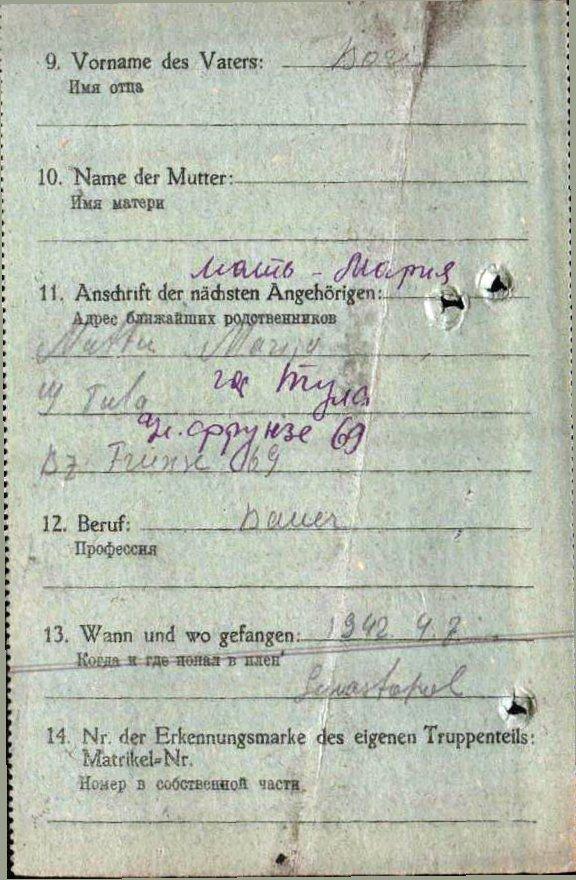 9. Vorname des Vaters:
Имя отца
10. Name der Mutter:
Имя матери
мать - Мария
11. Anschrift der nächsten Angehörigen:
Адрес ближайших родственников
Marija
гор Тула
in Tula
ул. Фрунзе 69
Frunse 69
12. Beruf: Bauer
Профессия
13. Wann und wo gefangen: 1942 4.7.
Когда и где попал в плен
Sewastopol
14. Nr. der Erkennungsmarke des eigenen Truppenteils:
Matrikel-Nr.
Номер в собственной части